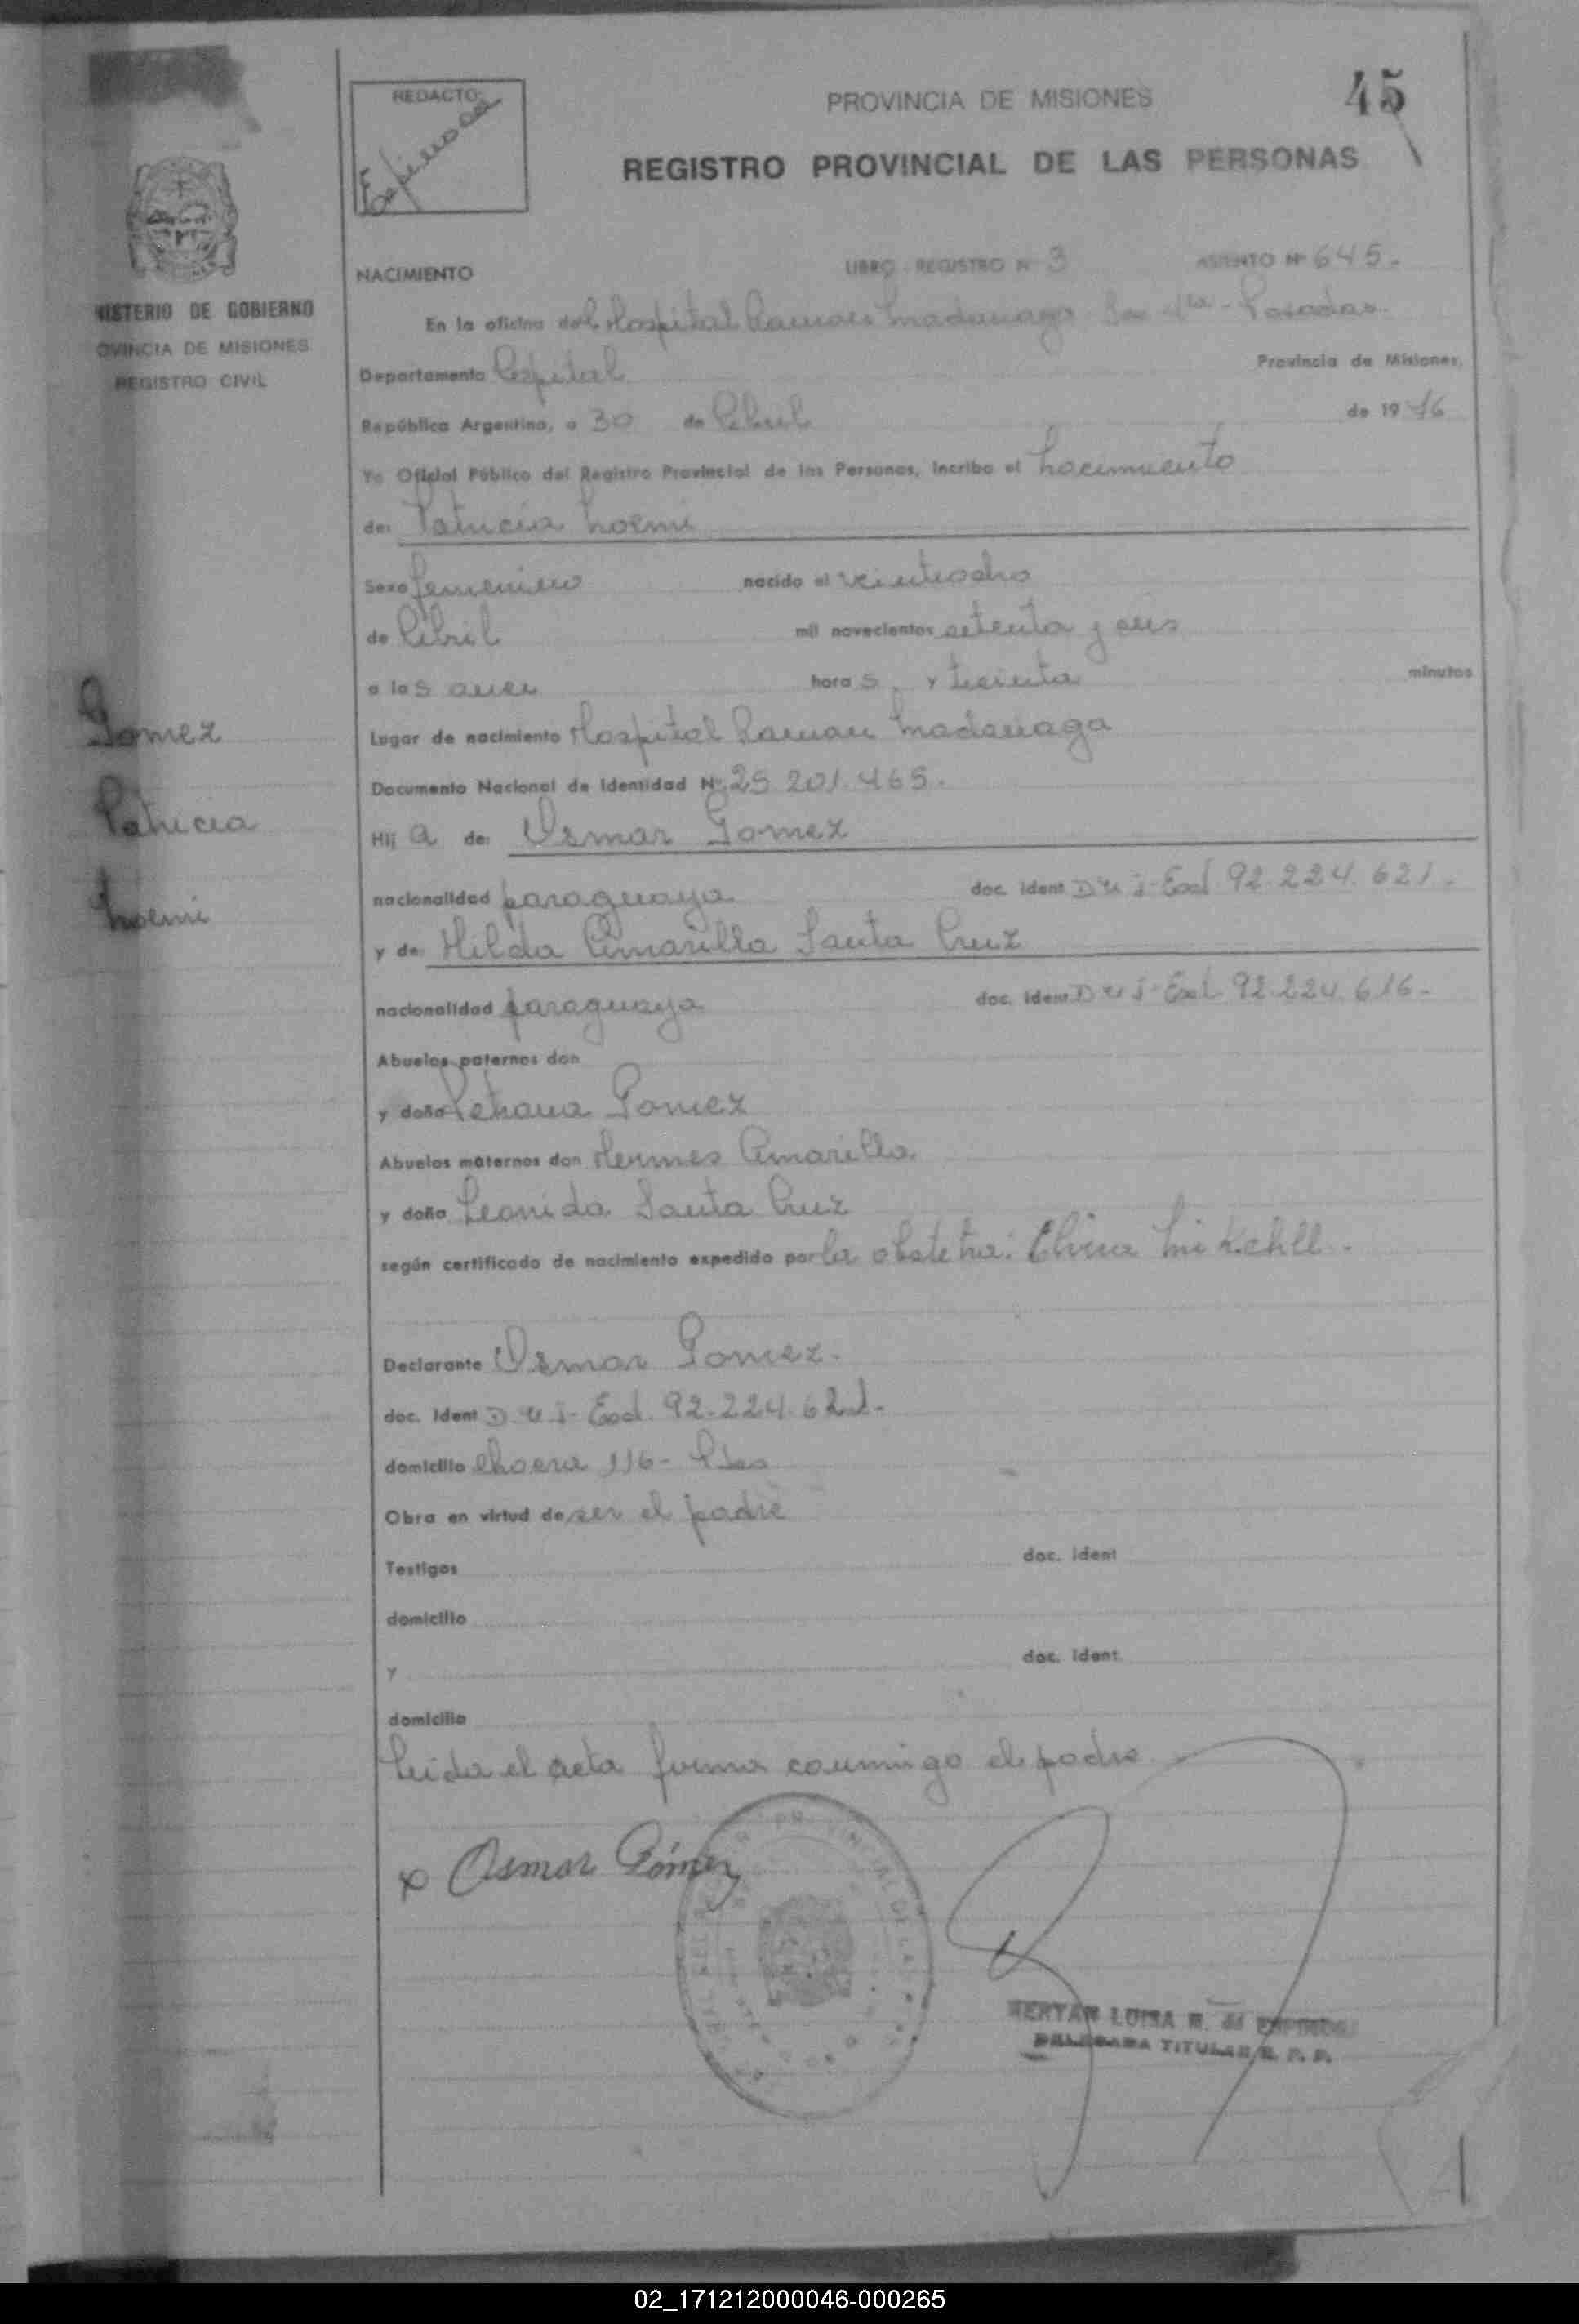 45
REDACTO:
Espinosa
PROVINCIA DE MISIONES
REGISTRO PROVINCIAL DE LAS PERSONAS
NISTERIO DE GOBIERNO
OVINCIA DE MISIONES
REGISTRO CIVIL
NACIMIENTO LIBRO - REGISTRO Nº 3 ASIENTO Nº 645.-
En la oficina del Hospital Ramon Madariaga Posadas.
Departamento Capital Provincia de Misiones,
República Argentina, a 30 de Abril de 1976
Yo Oficial Público del Registro Provincial de las Personas, incribo el Nacimiento
de: Patricia Noemi
Sexo femenino nacido el veintiocho
de Abril mil novecientos setenta y seis
a las once horas y treinta minutos
Lugar de nacimiento Hospital Ramon Madariaga
Documento Nacional de Identidad Nº 25.201.465.
Hija de: Osmar Gomez
nacionalidad paraguaya doc. ident D.U.i-Ext 92.224.621.
y de: Hilda Amarilla Santa Cruz
nacionalidad paraguaya doc. ident D.U.i-Ext 92.224.616-
Gomez
Patricia
Noemi
Abuelos paternos don
y doña Gomez
Abuelos maternos don Hermes Amarilla
y doña Leonida Santa Cruz
según certificado de nacimiento expedido por la obstetra:
Declarante Osmar Gomez.
doc. Ident D.U.i-Ext. 92.224.621.-
domicilio Chacra 116- Pdas
Obra en virtud de ser el padre
Testigos doc. ident
domicilio
y doc. ident.
domicilio
Leida el acta firma conmigo el padre
x Osmar Gómez
LUISA
DELEGADA TITULAR R. P. P.
02_171212000046-000265